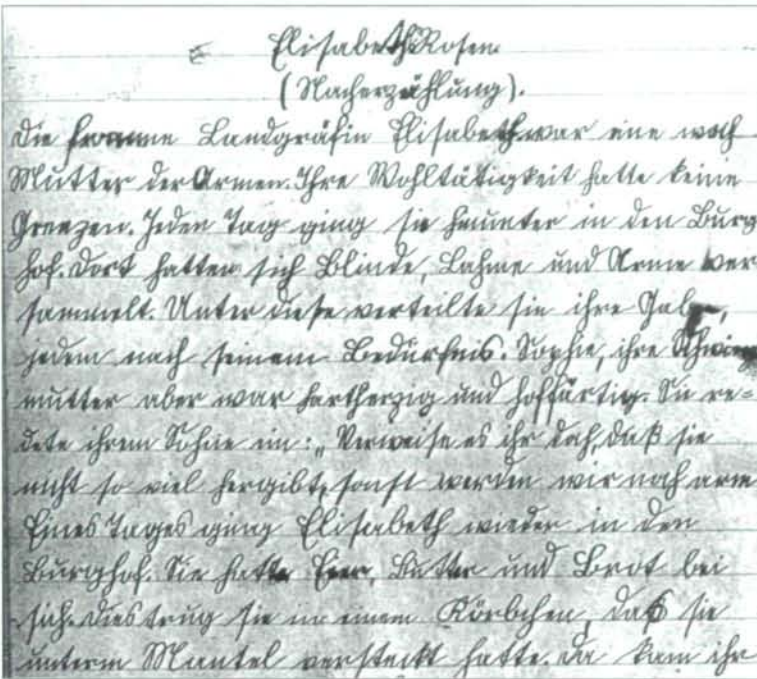 Elisabeths Rosen
(Nacherzählung).
Die fromme Landgräfin Elisabeth war eine
Mutter der Armen. Ihre Wohltätigkeit hatte keine
Grenzen. Jeden Tag ging sie herunter in den Burg
hof. Dort hatten sich Blinde, Lahme und Arme ver
sammelt. Unter diese verteilte sie ihre
jedem nach seinem Bedürfnis. Sophie, ihre
mutter aber war hartherzig und hoffärtig. Sie re=
dete ihrem Sohne ein: „Verweise es ihr doch, daß sie
nicht so viel hergibt, sonst werden wir noch arm
Eines Tages ging Elisabeth wieder in den
Burghof. Sie hatte Eier, Butter und Brot bei
sich. Dies trug sie in einem Körbchen, daß sie
unterm Mantel versteckt hatte. Da kam ihr